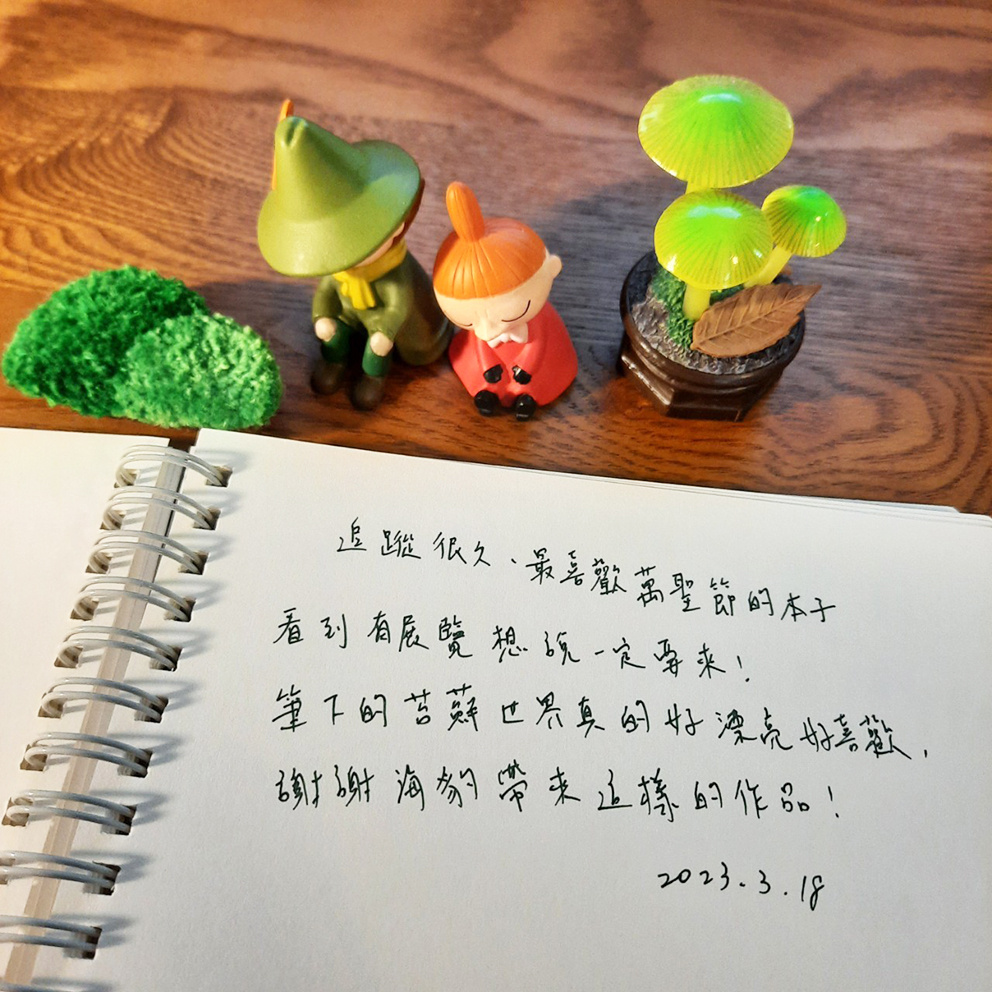 追蹤很久、最喜歡萬聖節的本子
看到有展覽想說一定要來！
筆下的苔蘚世界真的好漂亮好喜歡，
謝謝海豹帶來這樣的作品！
2023.3.18